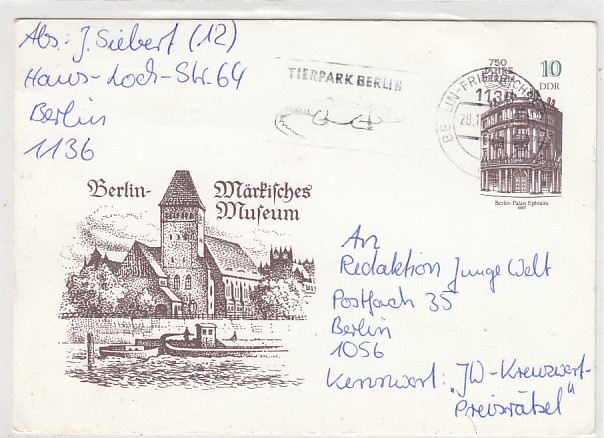 Abs.: J. Siebert (12)
Hans-Loch-Str. 64
Berlin
1136
TIERPARK BERLIN
750
JAHRE
BERLIN
10
DDR
BERLIN-FRIEDRICHSF
1136
Berlin-Palais Ephraim
1987
Berlin- Märkisches
Museum
An
Redaktion Junge Welt
Postfach 35
Berlin
1056
Kennwort: „JW-Kreuzwort-
Preisrätsel“